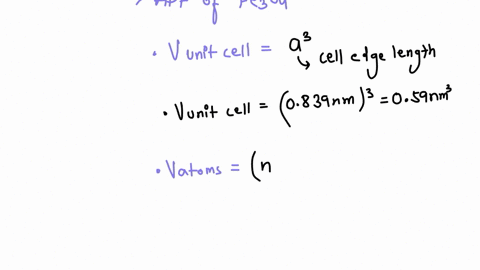 APF of Fe3O4
• V unit cell = a³
↳ cell edge length
• V unit cell = (0.839nm)³ = 0.59nm³
• Vatoms = (n